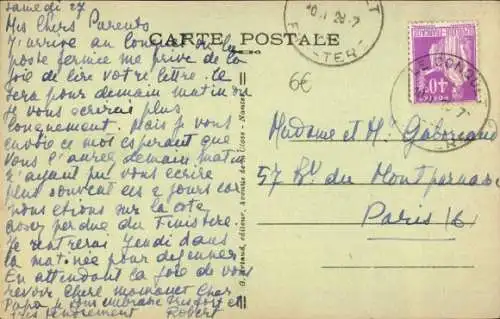 Samedi 27
Mes Chers Parents
J'arrive au Conquet où la
poste fermée me prive de la
joie de lire votre lettre. Ce
sera pour demain matin où
je vous écrirai plus
longuement. Mais je vous
envoie ce mot espérant que
vous l'aurez demain matin
n'ayant pu vous écrire
plus souvent ces 2 jours car
nous étions sur la côte
assez perdue du Finistère.
Je rentrerai Jeudi dans
la matinée pour déjeuner
En attendant la joie de vous
revoir Chère Mamanet Cher
Papa je vous embrasse très fort et
très tendrement Robert
CARTE POSTALE
6€
LE CONQUET
FINISTERE
Madame et M. Gaboriaud
57 Bd du Montparnasse
Paris 6